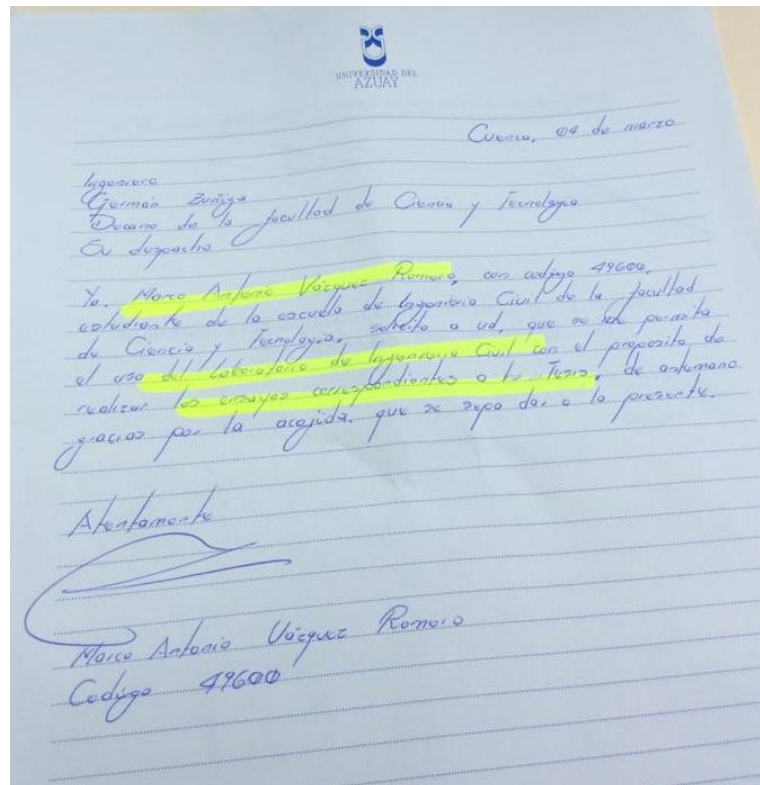 UNIVERSIDAD DEL
AZUAY
Cuenca, 04 de marzo
Ingeniero
Germán Zuñiga
Decano de la facultad de Ciencia y Tecnología
Su despacho
Yo, Marco Antonio Vázquez Romero, con codigo 49600,
estudiante de la escuela de Ingenieria Civil de la facultad
de Ciencia y Tecnologia, solicito a ud, que se me permita
el uso del Laboratorio de Ingenieria Civil con el proposito de
realizar los ensayos correspondientes a la Tesis, de antemano
gracias por la acojida, que se sepa dar a la presente.
Atentamente
Marco Antonio Vázquez Romero
Codigo 49600